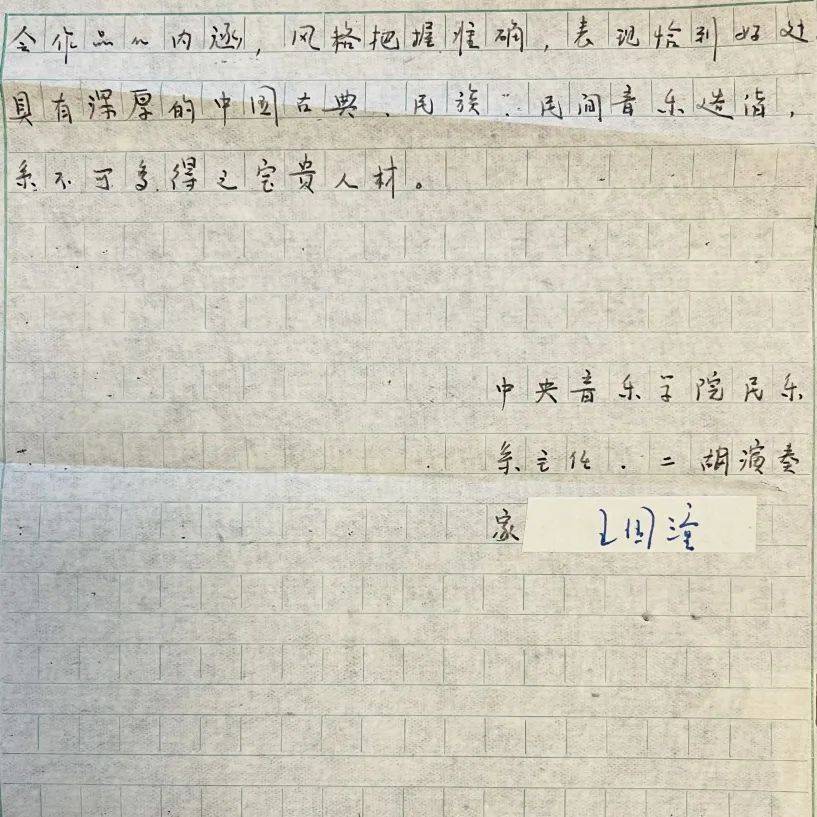 会作品的内涵，风格把握准确，表现恰到好处
具有深厚的中国古典、民族、民间音乐造诣，
系不可多得之宝贵人材。
中央音乐学院民乐
系主任、二胡演奏
家 王国潼